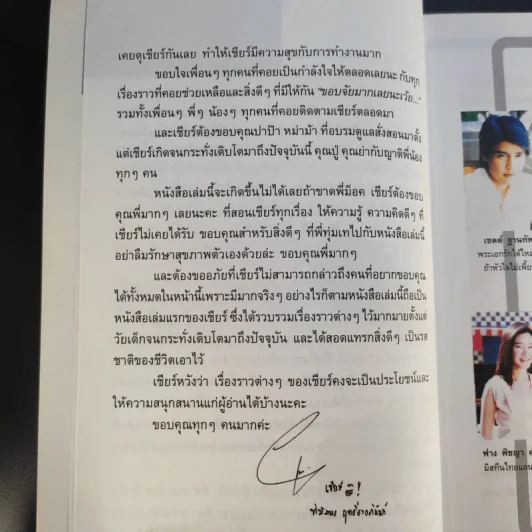 เคยดุเชียร์กันเลย ทำให้เชียร์มีความสุขกับการทำงานมาก
ขอบใจเพื่อนๆ ทุกคนที่คอยเป็นกำลังใจให้ตลอดเลยนะ กับทุก
เรื่องราวที่คอยช่วยเหลือและสิ่งดีๆ ที่มีให้กัน "ขอบจัยมากเลยนะเว้ย..."
รวมทั้งเพื่อนๆ พี่ๆ น้องๆ ทุกคนที่คอยติดตามเชียร์ตลอดมา
และเชียร์ต้องขอบคุณปาป๊า หม่าม้า ที่อบรมดูแลสั่งสอนมาตั้ง
แต่เชียร์เกิดจนกระทั่งเติบโตมาถึงปัจจุบันนี้ คุณปู่ คุณย่ากับญาติพี่น้อง
ทุกๆ คน
หนังสือเล่มนี้จะเกิดขึ้นไม่ได้เลยถ้าขาดพี่มีอค เชียร์ต้องขอบ
คุณพี่มากๆ เลยนะคะ ที่สอนเชียร์ทุกเรื่อง ให้ความรู้ ความคิดดีๆ ที่
เชียร์ไม่เคยได้รับ ขอบคุณสำหรับสิ่งดีๆ ที่พี่ทุ่มเทไปกับหนังสือเล่มนี้
อย่าลืมรักษาสุขภาพตัวเองด้วยล่ะ ขอบคุณพี่มากๆ
และต้องขออภัยที่เชียร์ไม่สามารถกล่าวถึงคนที่อยากขอบคุณ
ได้ทั้งหมดในหน้านี้เพราะมีมากจริงๆ อย่างไรก็ตามหนังสือเล่มนี้ถือเป็น
หนังสือเล่มแรกของเชียร์ ซึ่งได้รวบรวมเรื่องราวต่างๆ ไว้มากมายตั้งแต่
วัยเด็กจนกระทั่งเติบโตมาถึงปัจจุบัน และได้สอดแทรกสิ่งดีๆ เป็นรส
ชาติของชีวิตเอาไว้
เชียร์หวังว่า เรื่องราวต่างๆ ของเชียร์คงจะเป็นประโยชน์และ
ให้ความสนุกสนานแก่ผู้อ่านได้บ้างนะคะ
ขอบคุณทุกๆ คนมากค่ะ
เชียร์
ฑิฆัมพร ฤทธิ์ธาอภินันท์
เขตต์ ฐานทัพ
พระเอกรักใสให
ถ้าหัวใจไม่เพี้ย
ฟาง พิชญา
มิสทีนไทยแลน